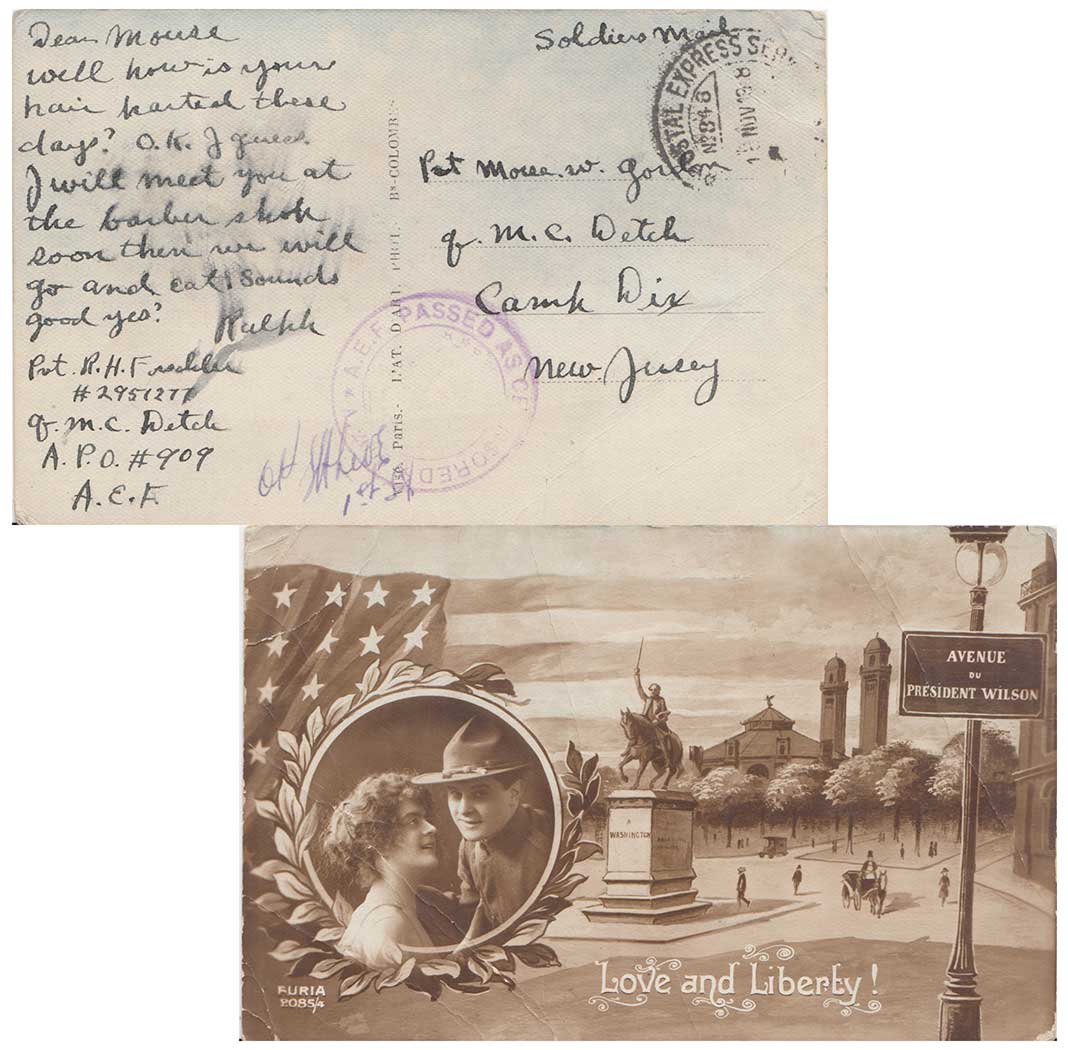 Dear Mouse
well how is your
hair parted these
days? O.K. I guess.
I will meet you at
the barber shop
soon then we will
go and eat. Sounds
good yes?
Ralph
Pvt. R. H.
# 2951277
Q. M. C. Detch
A. P. O. # 909
A. E. F.
Soldiers Mail
POSTAL EXPRESS SERV
No 848
NOV
Pvt Mouse. W.
Q. M. C. Detch
Camp Dix
New. Jersey
Paris. - L'AT. D'ART PHOT. - Bs-COLOMB
A.E.F. PASSED AS CENSORED
OK
1st Lt
AVENUE
DU
PRÉSIDENT WILSON
A
WASHINGTON
Love and Liberty !
FURIA
2085/4